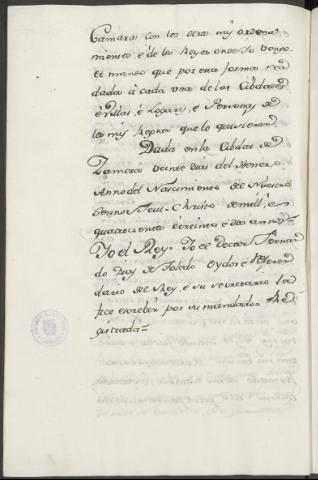 Camara con los otros mis ordena
mientos é de los Reyes onde Yo vengo.
et mando que por esta forma sea
dada à cada una de las Cibdades
é Villas, é Logares, é Personas de
los mis Regnos que lo quisieren
Dada en la Cibdat de
Zamora veinte dias del
Anno del Nascimiento de Nuestro
Sennor Jesu-Christo de mill, é
quatrocientos é treinta é dos annos=
Yo el Rey= Yo el Doctor Fernan
do Diaz de Toledo Oydor é Referen
dario del Rey, é su secretario la
fice escrebir por su mandado= Re
gistrada=